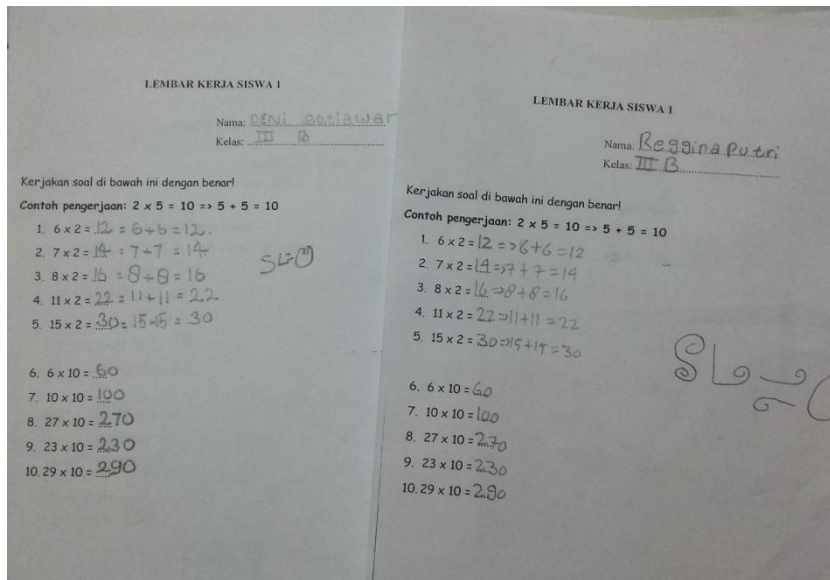 LEMBAR KERJA SISWA 1
Nama: DENi Setiawan
Kelas: III B
Kerjakan soal di bawah ini dengan benar!
Contoh pengerjaan: 2 x 5 = 10 => 5 + 5 = 10
1. 6 x 2 = 12 = 6+6 = 12.
2. 7 x 2 = 14 = 7+7 = 14
3. 8 x 2 = 16 = 8+8 = 16
4. 11 x 2 = 22 = 11+11 = 22
5. 15 x 2 = 30 = 15+15 = 30
SL=0
6. 6 x 10 = 60
7. 10 x 10 = 100
8. 27 x 10 = 270
9. 23 x 10 = 230
10. 29 x 10 = 290
LEMBAR KERJA SISWA 1
Nama: Reggina Putri
Kelas: III B
Kerjakan soal di bawah ini dengan benar!
Contoh pengerjaan: 2 x 5 = 10 => 5 + 5 = 10
1. 6 x 2 = 12 => 6+6 = 12
2. 7 x 2 = 14 => 7 + 7 = 14
3. 8 x 2 = 16 => 8+8 = 16
4. 11 x 2 = 22 => 11+11 = 22
5. 15 x 2 = 30 => 15+15 = 30
SL
6. 6 x 10 = 60
7. 10 x 10 = 100
8. 27 x 10 = 270
9. 23 x 10 = 230
10. 29 x 10 = 290